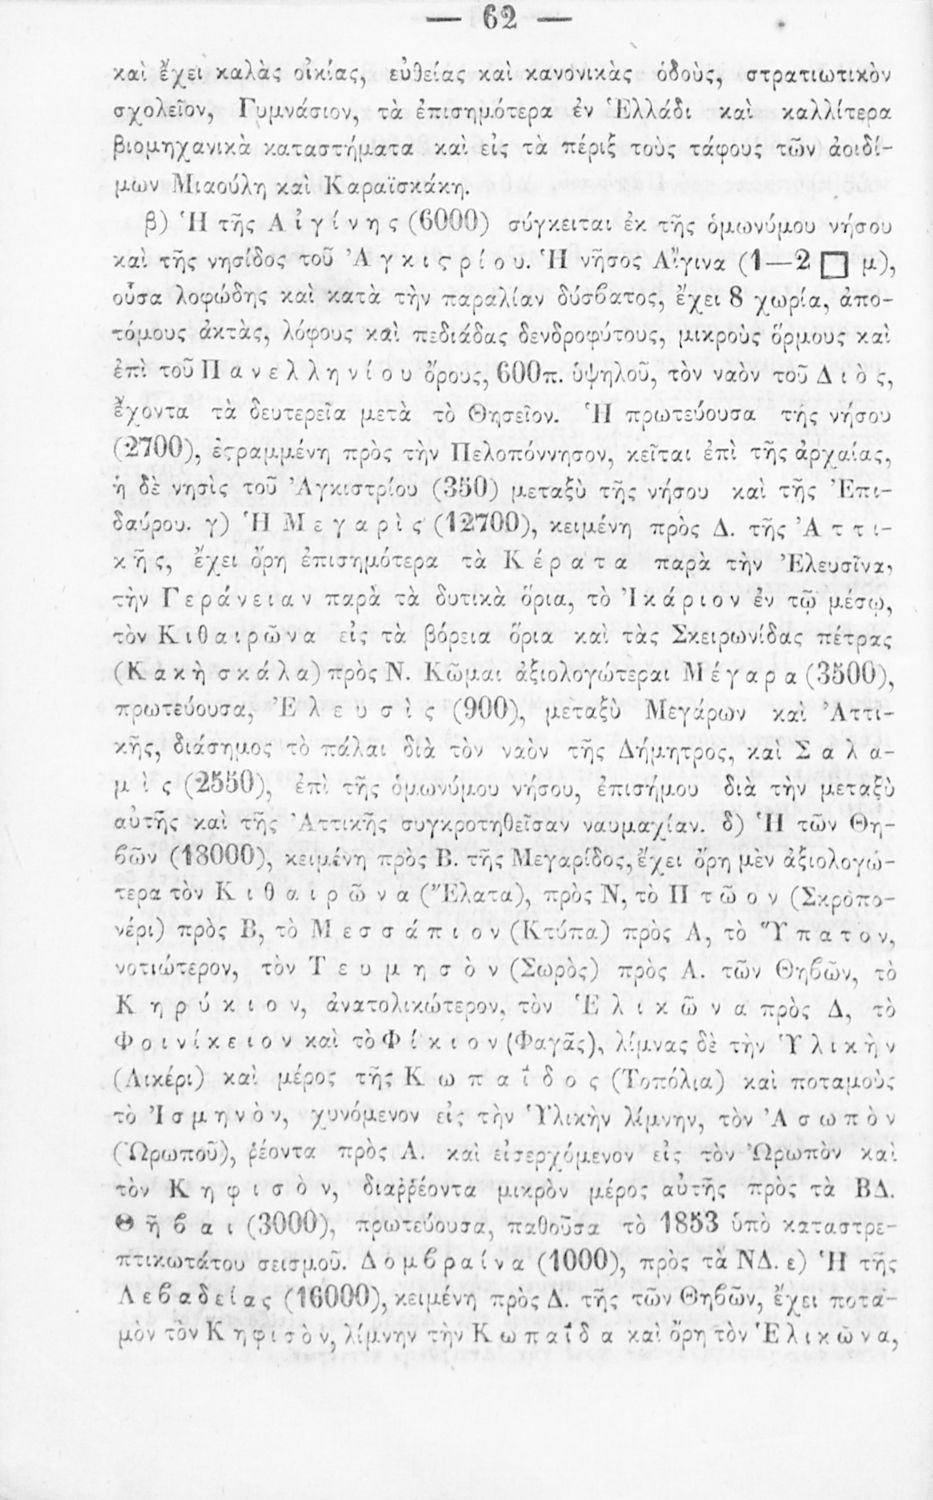 — 62 —
καὶ ἔχει καλὰς οἰκίας, εὐθείας καὶ κανονικὰς ὁδοὺς, στρατιωτικὸν
σχολεῖον, Γυμνάσιον, τὰ ἐπισημότερα ἐν Ἑλλάδι καὶ καλλίτερα
βιομηχανικὰ καταστήματα καὶ εἰς τὰ πέριξ τοὺς τάφους τῶν ἀοιδί-
μων Μιαούλη καὶ Καραϊσκάκη.
β) Ἡ τῆς Αἰγίνης (6000) σύγκειται ἐκ τῆς ὁμωνύμου νήσου
καὶ τῆς νησίδος τοῦ Ἀγκιςρίου. Ἡ νῆσος Αἴγινα (1—2 □ μ),
οὖσα λοφώδης καὶ κατὰ τὴν παραλίαν δύσβατος, ἔχει 8 χωρία, ἀπο-
τόμους ἀκτὰς, λόφους καὶ πεδιάδας δενδροφύτους, μικροὺς ὅρμους καὶ
ἐπὶ τοῦ Πανελληνίου ὄρους, 600π. ὑψηλοῦ, τὸν ναὸν τοῦ Διὸς,
ἔχοντα τὰ δευτερεῖα μετὰ τὸ Θησεῖον. Ἡ πρωτεύουσα τῆς νήσου
(2700), ἐςραμμένη πρὸς τὴν Πελοπόννησον, κεῖται ἐπὶ τῆς ἀρχαίας,
ἡ δὲ νησὶς τοῦ Ἀγκιστρίου (350) μεταξὺ τῆς νήσου καὶ τῆς Ἐπι-
δαύρου. γ) Ἡ Μεγαρὶς (12700), κειμένη πρὸς Δ. τῆς Ἀττι-
κῆς, ἔχει ὄρη ἐπισημότερα τὰ Κέρατα παρὰ τὴν Ἐλευσῖνα,
τὴν Γεράνειαν παρὰ τὰ δυτικὰ ὅρια, τὸ Ἰκάριον ἐν τῷ μέσῳ,
τὸν Κιθαιρῶνα εἰς τὰ βόρεια ὅρια καὶ τὰς Σκειρωνίδας πέτρας
(Κακὴ σκάλα) πρὸς Ν. Κῶμαι ἀξιολογώτεραι Μέγαρα (3500),
πρωτεύουσα, Ἐλευσὶς (900), μεταξὺ Μεγάρων καὶ Ἀττι-
κῆς, διάσημος τὸ πάλαι διὰ τὸν ναὸν τῆς Δήμητρος, καὶ Σαλα-
μὶς (2550), ἐπὶ τῆς ὁμωνύμου νήσου, ἐπισήμου διὰ τὴν μεταξὺ
αὐτῆς καὶ τῆς Ἀττικῆς συγκροτηθεῖσαν ναυμαχίαν. δ) Ἡ τῶν Θη-
βῶν (18000), κειμένη πρὸς Β. τῆς Μεγαρίδος, ἔχει ὄρη μὲν ἀξιολογώ-
τερα τὸν Κιθαιρῶνα (Ἔλατα), πρὸς Ν, τὸ Πτῶον (Σκρόπο-
νέρι) πρὸς Β, τὸ Μεσσάπιον (Κτύπα) πρὸς Α, τὸ Ὕπατον,
νοτιώτερον, τὸν Τευμησὸν (Σωρὸς) πρὸς Α. τῶν Θηβῶν, τὸ
Κηρύκιον, ἀνατολικώτερον, τὸν Ἑλικῶνα πρὸς Δ, τὸ
Φοινίκειον καὶ τὸ Φίκιον (Φαγᾶς), λίμνας δὲ τὴν Ὑλικὴν
(Λικέρι) καὶ μέρος τῆς Κωπαΐδος (Τοπόλια) καὶ ποταμοὺς
τὸ Ἰσμηνὸν, χυνόμενον εἰς τὴν Ὑλικὴν λίμνην, τὸν Ἀσωπὸν
(Ὠρωποῦ), ῥέοντα πρὸς Α. καὶ εἰσερχόμενον εἰς τὸν Ὠρωπὸν καὶ
τὸν Κηφισὸν, διαῤῥέοντα μικρὸν μέρος αὐτῆς πρὸς τὰ ΒΔ.
Θῆβαι (3000), πρωτεύουσα, παθοῦσα τὸ 1853 ὑπὸ καταστρε-
πτικωτάτου σεισμοῦ. Δομβραίνα (1000), πρὸς τὰ ΝΔ. ε) Ἡ τῆς
Λεβαδείας (16000), κειμένη πρὸς Δ. τῆς τῶν Θηβῶν, ἔχει ποτα-
μὸν τὸν Κηφισὸν, λίμνην τὴν Κωπαΐδα καὶ ὄρη τὸν Ἑλικῶνα,